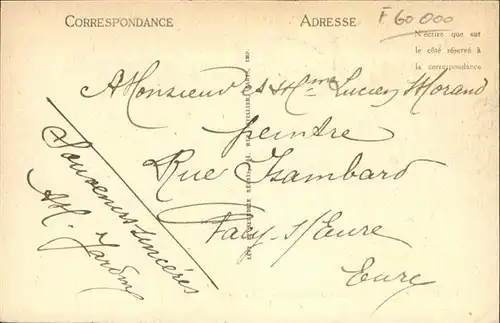 CORRESPONDANCE
ADRESSE
F 60 000
N'écrire que sur
le côté réservé à
la correspondance
A Monsieur et Mme Lucien Morand
peintre
Rue Isambard
Pacy-s/Eure
Eure
Souvenirs sincères